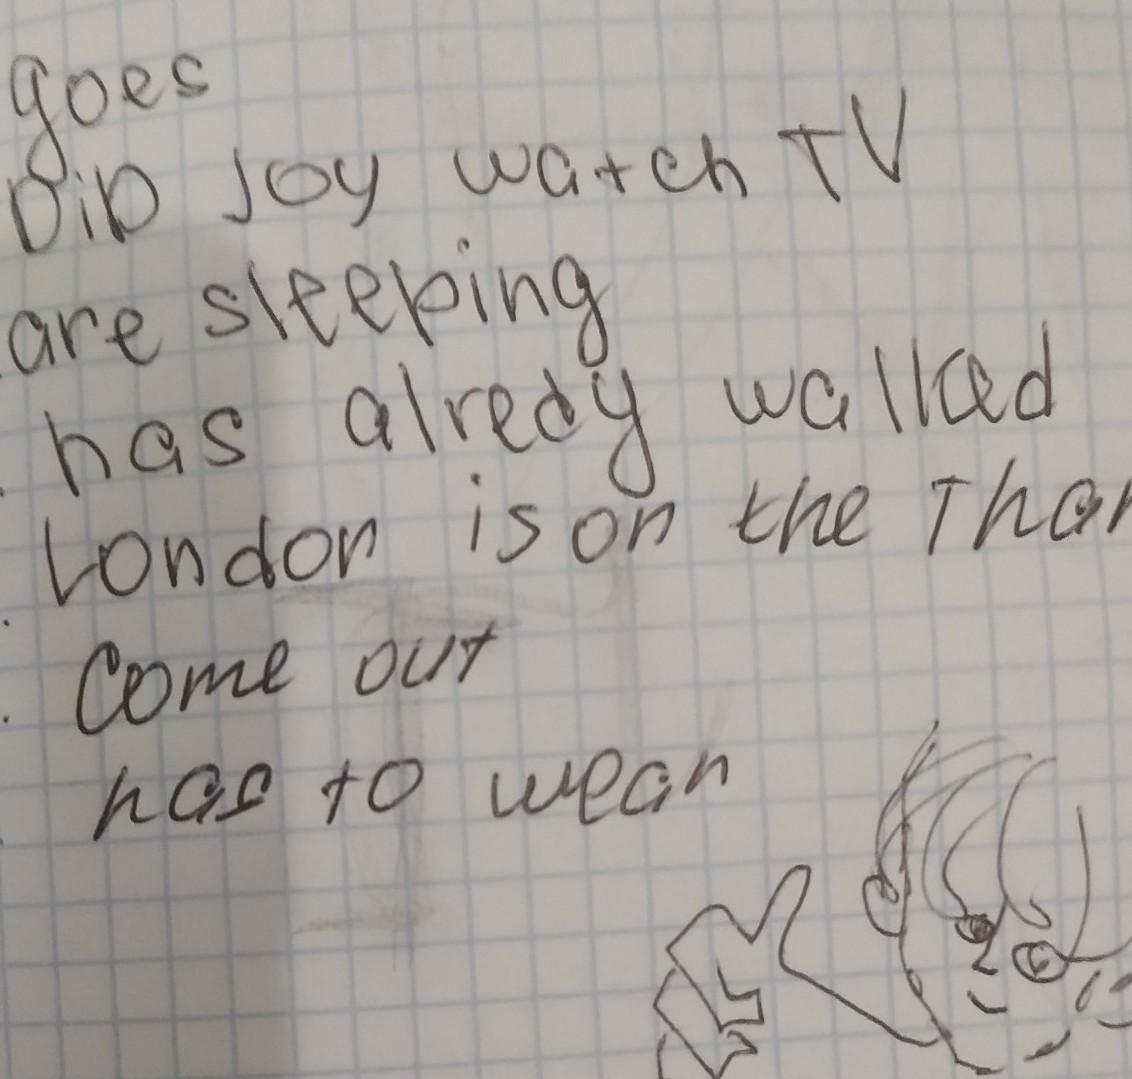 goes
DiD Joy watch TV
are sleeping
has alredy walked
London is on the Tham
Come out
has to wear